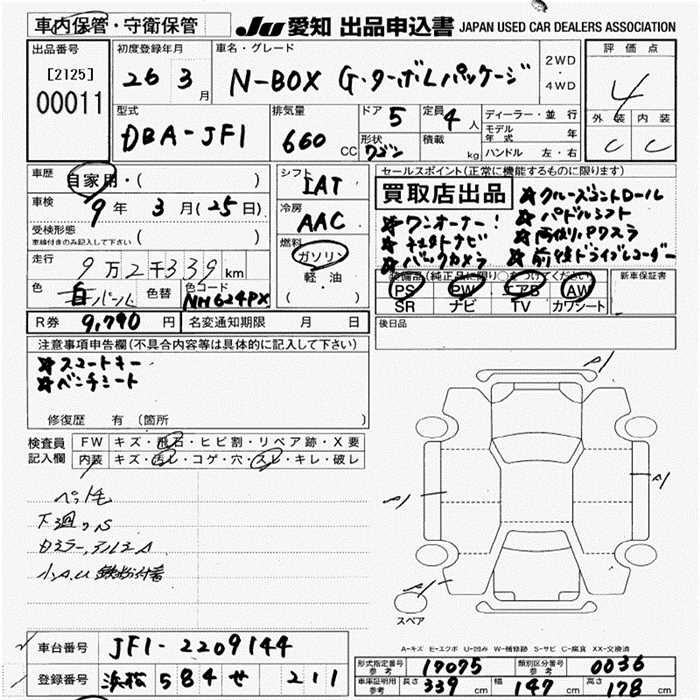 車内保管・守衛保管 JU 愛知 出品申込書 JAPAN USED CAR DEALERS ASSOCIATION
出品番号 初度登録年月 車名・グレード 評価点
[2125] 26 3月 N-BOX G・ターボLパッケージ 2WD・4WD 4
00011
型式 排気量 ドア 5 定員 4人 ディーラー・並行 外装 内装
DBA-JF1 660CC 形状 ワゴン 積載 kg モデル年式 年 C C
ハンドル 左・右
車歴 自家用・( ) シフト IAT セールスポイント(正常に機能するものに限ります)
車検 9年 3月(25日) 冷房 AAC 買取店出品 ☆クルーズコントロール
受検形態 ☆ワンオーナー! ☆パドルシフト
車検付きのみ記入して下さい( ) 燃料 ガソリン ☆社外ナビ ☆両側Pスラ
走行 9万2千339km 軽油 ☆バックカメラ ☆前後ドライブレコーダー
色 白パール 色替 色コード NH624PX ( ) 装備品(純正品に限り○をつけてください) 新車保証書
PS PW エアB AW
SR ナビ TV カワシート
R券 9,790円 名変通知期限 月 日 後日品
注意事項申告欄(不具合内容等は具体的に記入して下さい)
☆スマートキー
☆ベンチシート
修復歴 有(箇所 )
検査員記入欄 FW キズ・飛石・ヒビ割・リペア跡・X要
内装 キズ・汚レ・コゲ・穴・スレ・キレ・破レ
A1
A1 A1
ペット毛
下廻りS
小A.U 鉄粉付着
A1
スペア
A-キズ E-エクボ U-凹み W-補修跡 S-サビ C-腐食 XX-交換済
車台番号 JF1-2209144
登録番号 浜松 584 せ 211
形式指定番号参考 17075 類別区分番号参考 0036
車庫証明用参考 長さ 339cm 幅 147cm 高さ 178cm